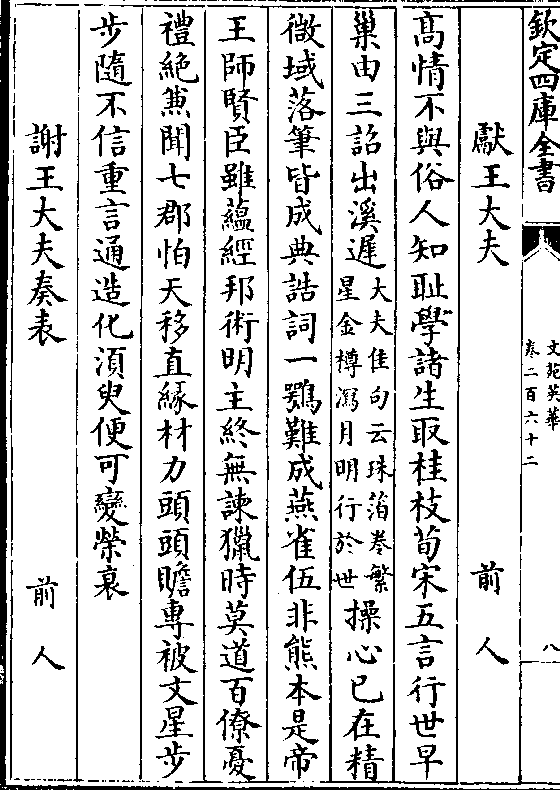 欽定四庫全書
文苑英華
卷二百六十二
八
獻王大夫 前人
髙情不與俗人知耻學諸生取桂枝荀宋五言行世早
巢由三詔出溪遲大夫佳句云珠箔卷繁星金樽瀉月明行於世操心已在精
微域落筆皆成典誥詞一鶚難成燕雀伍非熊本是帝
王師賢臣雖蘊經邦術明主終無諫獵時莫道百僚憂
禮絶兼聞七郡怕天移直緣材力頭頭贍專被文星步
步隨不信重言通造化湏臾便可變榮衰
謝王大夫奏表 前人